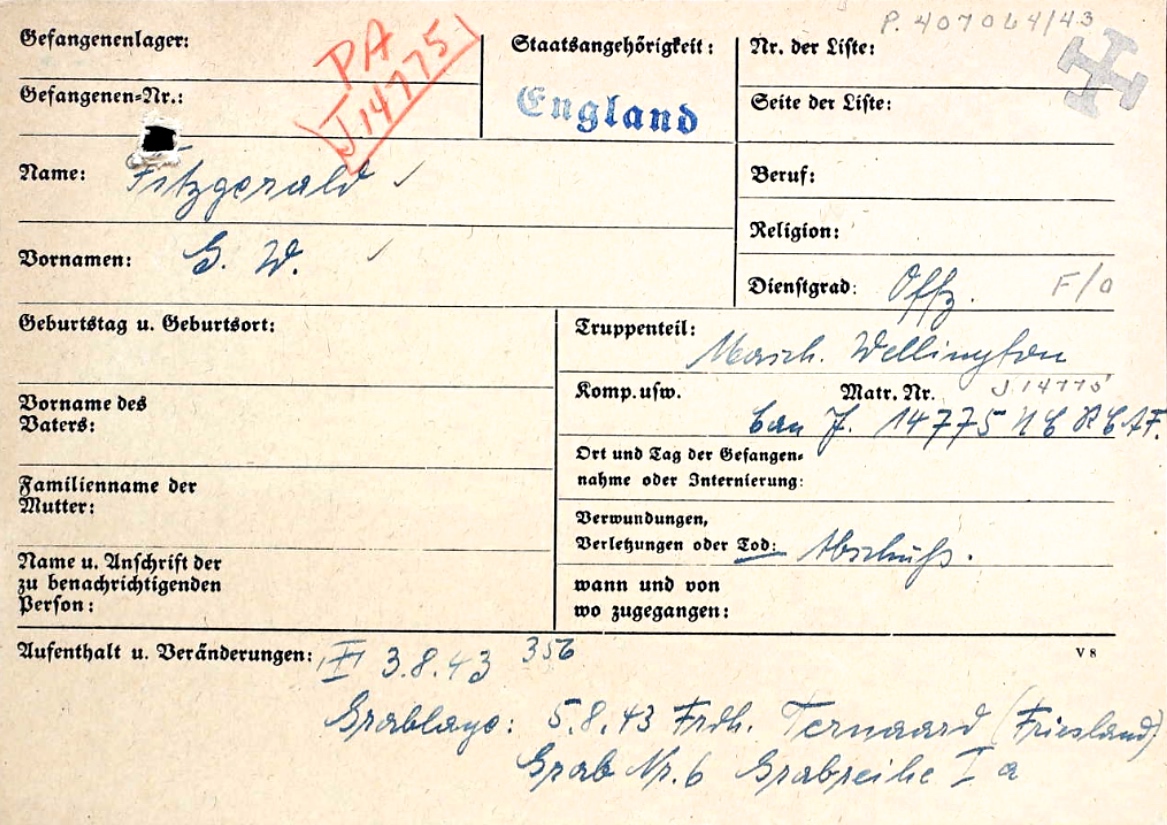 P. 407064/43
Gefangenenlager:
PA
J14775
Staatsangehörigkeit:
England
Nr. der Liste:
Gefangenen-Nr.:
Seite der Liste:
Name: Fitzgerald ✓
Beruf:
Religion:
Vornamen: G. W. ✓
Dienstgrad: Offz. F/O
Geburtstag u. Geburtsort:
Truppenteil:
Masch. Wellington
Komp. usw. Matr. Nr. J 14775
Can J. 14775 RCAF.
Vorname des
Vaters:
Ort und Tag der Gefangen-
nahme oder Internierung:
Familienname der
Mutter:
Verwundungen,
Verletzungen oder Tod: Abschuß.
Name u. Anschrift der
zu benachrichtigenden
Person:
wann und von
wo zugegangen:
Aufenthalt u. Veränderungen: 3.8.43 356
V 8
Grablage: 5.8.43 Frdh. Ternaard (Friesland)
Grab Nr. 6 Grabreihe I a